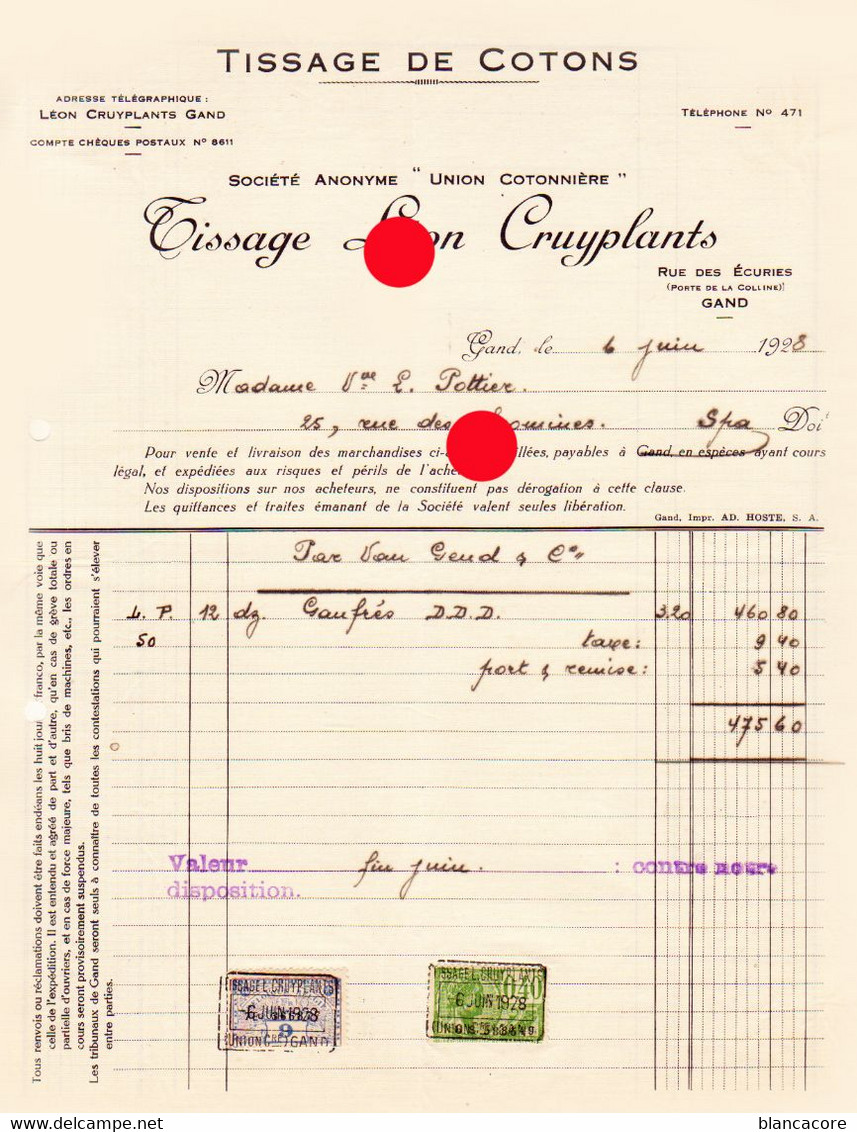 TISSAGE DE COTONS
ADRESSE TÉLÉGRAPHIQUE :
LÉON CRUYPLANTS GAND
COMPTE CHÈQUES POSTAUX Nº 8611
TÉLÉPHONE Nº 471
SOCIÉTÉ ANONYME " UNION COTONNIÈRE "
Tissage Léon Cruyplants
RUE DES ÉCURIES
(PORTE DE LA COLLINE)
GAND
Gand, le 6 juin 1928
Madame Vve L. Pottier.
25, rue des Spa Doit
Pour vente et livraison des marchandises ci- payables à Gand, en espèces ayant cours
légal, et expédiées aux risques et périls de
Nos dispositions sur nos acheteurs, ne constituent pas dérogation à cette clause.
Les quittances et traites émanant de la Société valent seules libération.
Gand, Impr. AD. HOSTE, S. A.
Par Van Gend & Co
L. P. 12 dz. Gaufrés D.D.D. 3.20 460 80
50 taxe: 9 40
port & remise: 5 40
475 60
Valeur fin juin. : contre notre
disposition.
TISSAGE L. CRUYPLANTS
-6 JUIN 1928
9
(UNION Cre) GAND
TISSAGE L. CRUYPLANTS
0.40
-6 JUIN 1928
Tous renvois ou réclamations doivent être faits endéans les huit jours franco, par la même voie que
celle de l'expédition. Il est entendu et agréé de part et d'autre, qu'en cas de grève totale ou
partielle d'ouvriers, et en cas de force majeure, tels que bris de machines, etc., les ordres en
cours seront provisoirement suspendus.
Les tribunaux de Gand seront seuls à connaître de toutes les contestations qui pourraient s'élever
entre parties.
blancacore